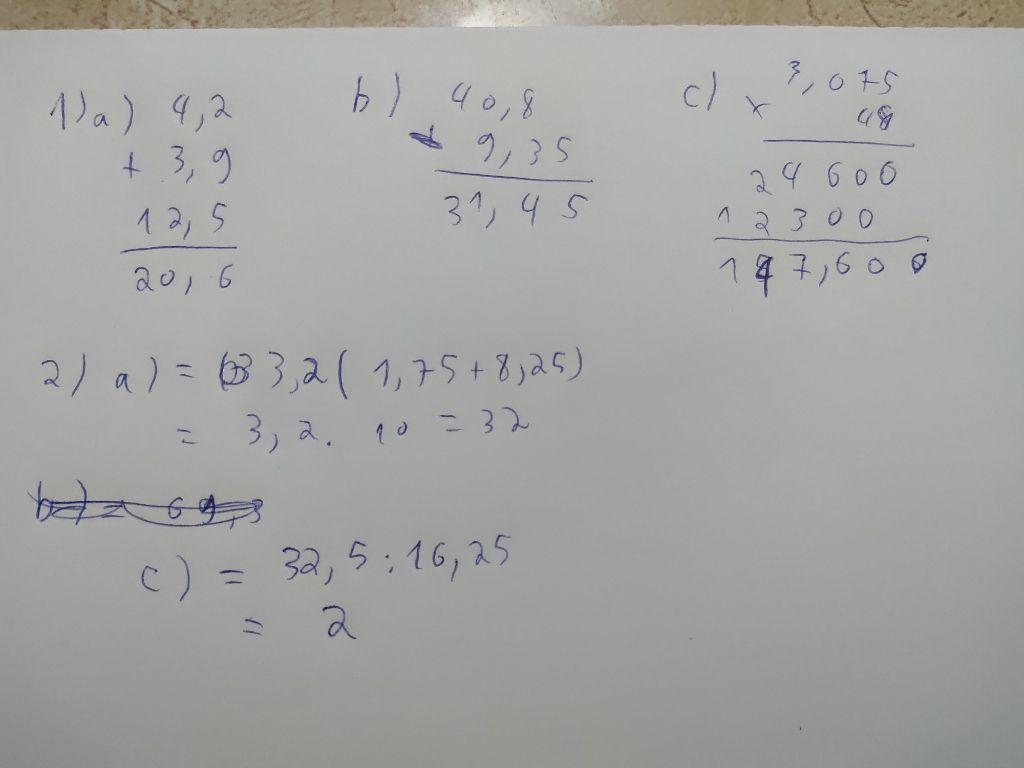 1) a) 4,2
+ 3,9
12,5
20,6
b) 40,8
9,35
31,45
c) 3,075
x 48
24600
12300
147,600
2) a) = 3,2( 1,75+8,25)
= 3,2. 10 = 32
c) = 32,5:16,25
= 2